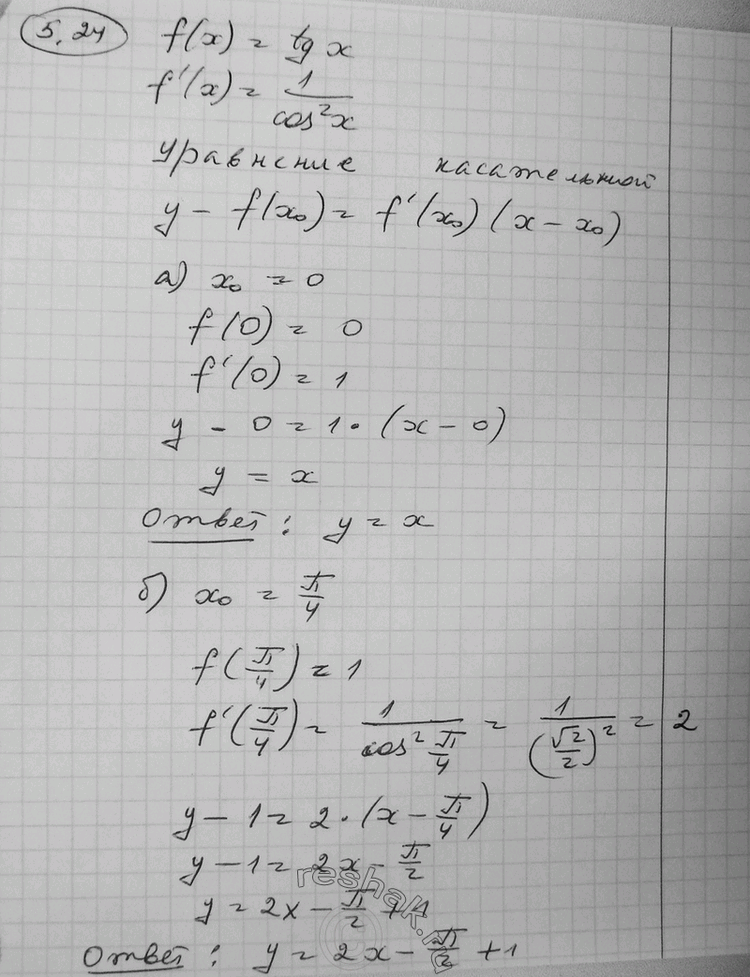 5.24 f(x) = tg x
f'(x) = 1/cos²x
Уравнение касательной
y - f(x₀) = f'(x₀)(x - x₀)
а) x₀ = 0
f(0) = 0
f'(0) = 1
y - 0 = 1·(x - 0)
y = x
Ответ: y = x
б) x₀ = π/4
f(π/4) = 1
f'(π/4) = 1/cos² π/4 = 1/(√2/2)² = 2
y - 1 = 2·(x - π/4)
y - 1 = 2x - π/2
y = 2x - π/2 + 1
Ответ: y = 2x - π/2 + 1
reshak.ru